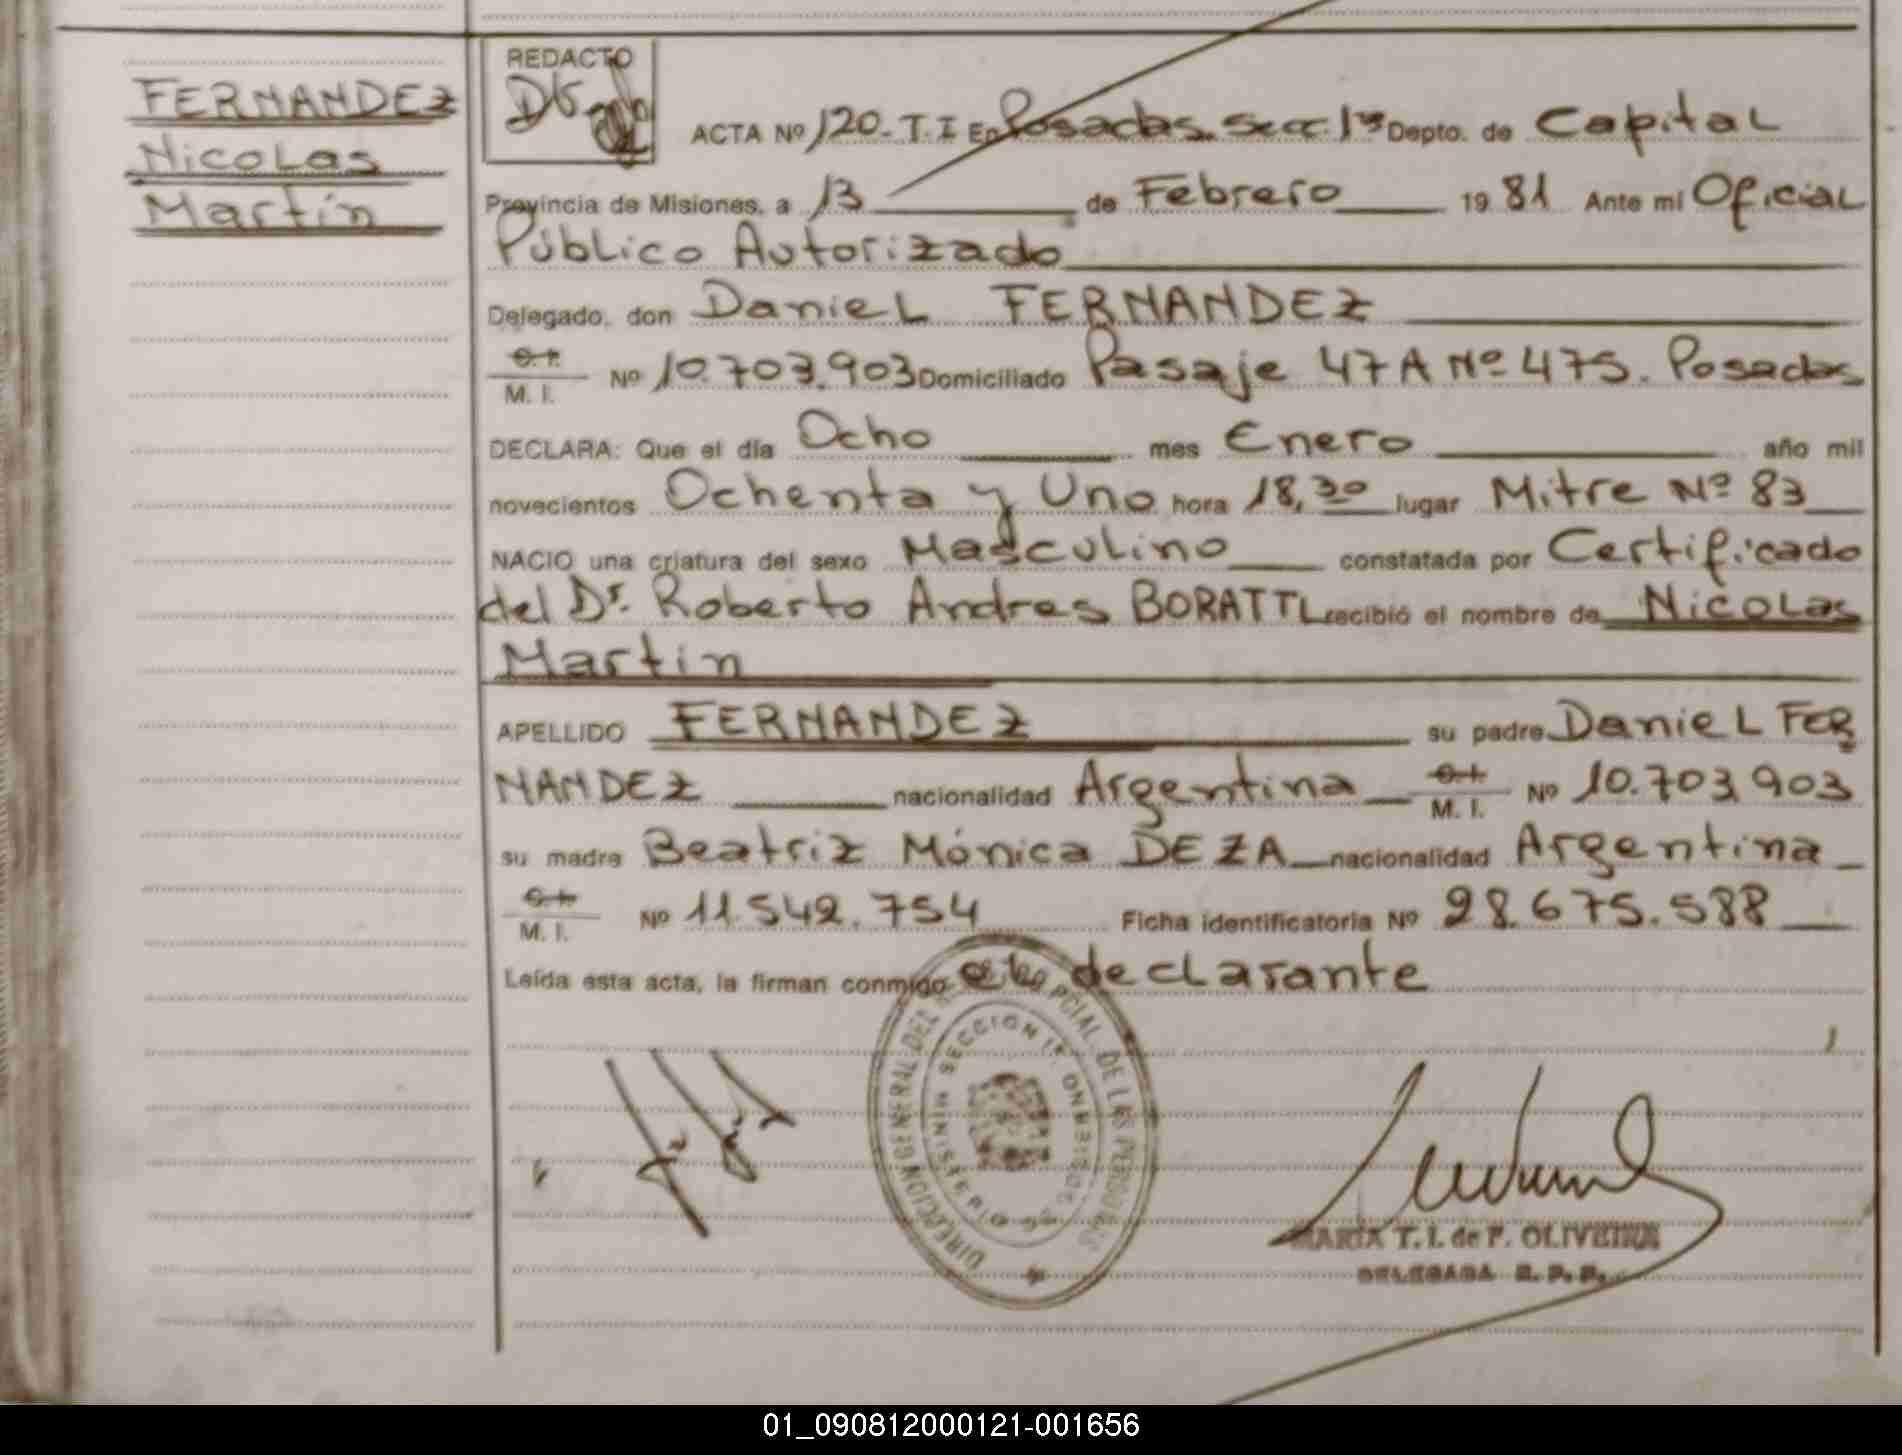 FERNANDEZ
Nicolas
Martín
REDACTO
ACTA Nº 120. T. I En Posadas. Secc. 1ra Depto. de Capital
Provincia de Misiones, a 13 de Febrero 1981 Ante mi Oficial
Público Autorizado
Delegado, don Daniel FERNANDEZ
C. I.
M. I. Nº 10.703.903 Domiciliado Pasaje 47A Nº 475. Posadas
DECLARA: Que el día Ocho mes Enero año mil
novecientos Ochenta y Uno hora 18,30 lugar Mitre Nº 83
NACIO una criatura del sexo Masculino constatada por Certificado
del Dr. Roberto Andres BORATTI recibió el nombre de Nicolas
Martin
APELLIDO FERNANDEZ su padre Daniel FER
NANDEZ nacionalidad Argentina C. I. M. I. Nº 10.703.903
su madre Beatriz Mónica DEZA nacionalidad Argentina
C. I.
M. I. Nº 11.542.754 Ficha identificatoria Nº 28.675.588
Leída esta acta, la firman conmigo el declarante
DIRECCION GENERAL DEL PCIAL. DE LAS PERSONAS
SECCION 1ª
MINISTERIO DE GOBIERNO
MARIA T. I. de F. OLIVEIRA
DELEGADA R. P. P.
01_090812000121-001656